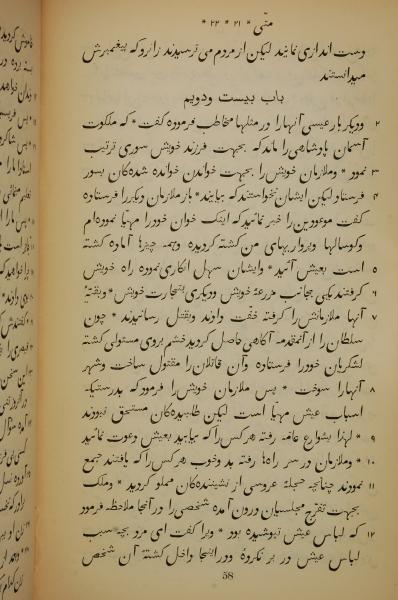 متی * ۲۱ * ۲۲ *
دست اندازی نمایند لیکن از مردم می ترسیدند زانرو که پیغمبرش
میدانستند
باب بیست و دویم
۲ و دیگر بار عیسی آنها را در مثلها مخاطب فرموده گفت * که ملکوت
آسمان پادشاهی را ماند که بجهت فرزند خویش سوری ترتیب
۳ نمود * و ملازمان خویش را بجهت خواندن خوانده شده کان بسور
۴ فرستاد لیکن ایشان نخواستند که بیایند * باز ملازمان دیگر را فرستاده
گفت موعودین را خبر نمائید که اینک خوان خود را مهیا نموده ام
و گوسالها و پرواریهای من کشته گردیده و همه چیزها آماده گشته
۵ است بعیش آئید * و ایشان سهل انکاری نموده راه خویش
۶ گرفتند یکی بجانب مزرعهٔ خویش و دیگری بتجارت خویش * و بقیّهٔ
۷ آنها ملازمانش را گرفته خفت دادند و بقتل رسانیدند * چون
سلطان را از آنمقدمه آگاهی حاصل گردید خشم بروی مستولی گشته
لشکریان خود را فرستاده و آن قاتلان را مقتول ساخت و شهر
۸ آنها را سوخت * پس ملازمان خویش را فرمود که بدرستیکه
اسباب عیش مهیا است لیکن طلبیده کان مستحق نبودند
۹ * لهذا بشوارع عامه رفته هر کس را که بیابید بعیش دعوت نمائید
۱۰ * و ملازمان در سر راه ها رفته بد و خوب هر کس را که یافتند جمع
۱۱ نمودند چنانچه حجلهٔ عروسی از نشینندکان مملو گردید * و ملک
بجهت تفرج مجلسیان درون آمده شخصی را در آنجا ملاحظه فرمود
۱۲ که لباس عیش نپوشیده بود * و برا گفت ای مرد بچه سبب
لباس عیش در بر نکرده و در اینجا داخل گشتهٔ آن شخص
58